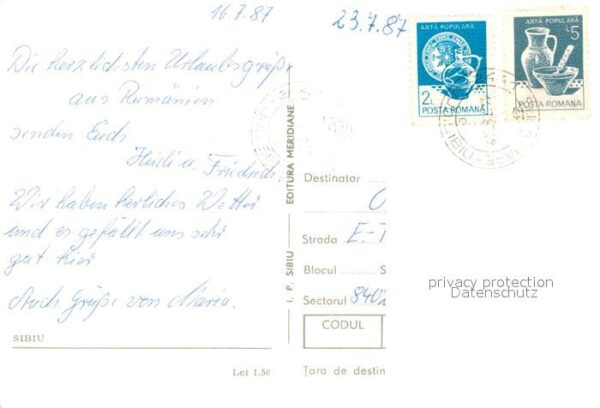 16.7.87
Die herzlichsten Urlaubsgrüße
aus Rumänien
senden Euch
Heidi u. Friedrich.
Wir haben herrliches Wetter
und es gefällt uns sehr
gut hier
Auch Grüße von Maria.
SIBIU
Lei 1,50
I. P. SIBIU EDITURA MERIDIANE
23.7.87
ARTĂ POPULARĂ
2L
POSTA ROMANA
ARTĂ POPULARĂ
L5
POSTA ROMANA
SIBIU
Destinatar
Strada E-T
Blocul S
Sectorul 8402
CODUL
Țara de destin
privacy protection
Datenschutz